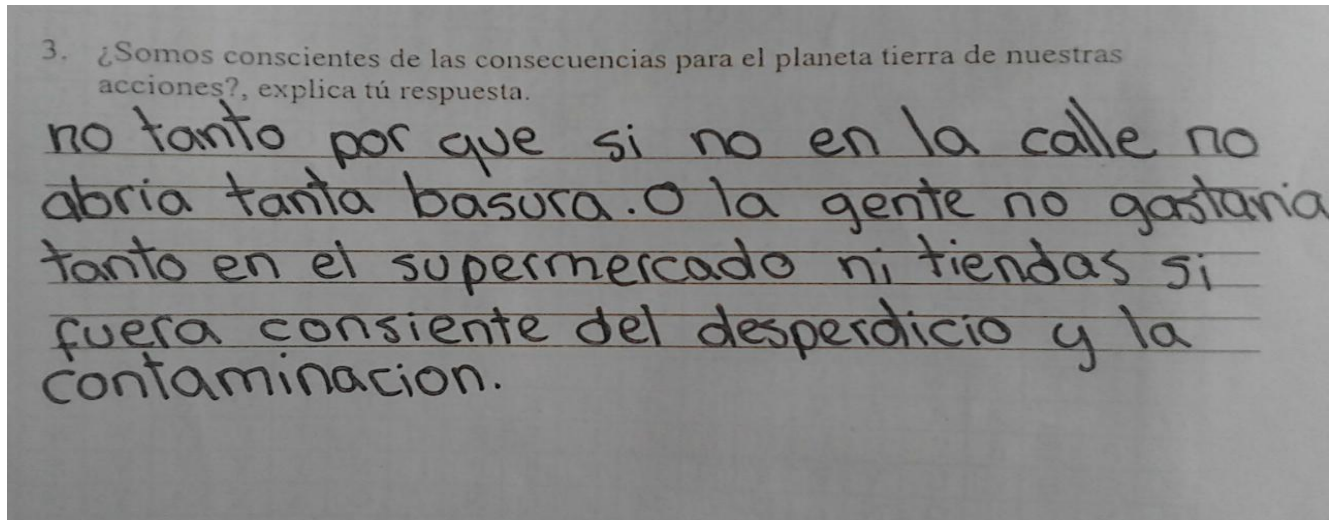 3. ¿Somos conscientes de las consecuencias para el planeta tierra de nuestras
acciones?, explica tú respuesta.
no tanto por que si no en la calle no
abria tanta basura. O la gente no gastaria
tanto en el supermercado ni tiendas si
fuera consiente del desperdicio y la
contaminacion.